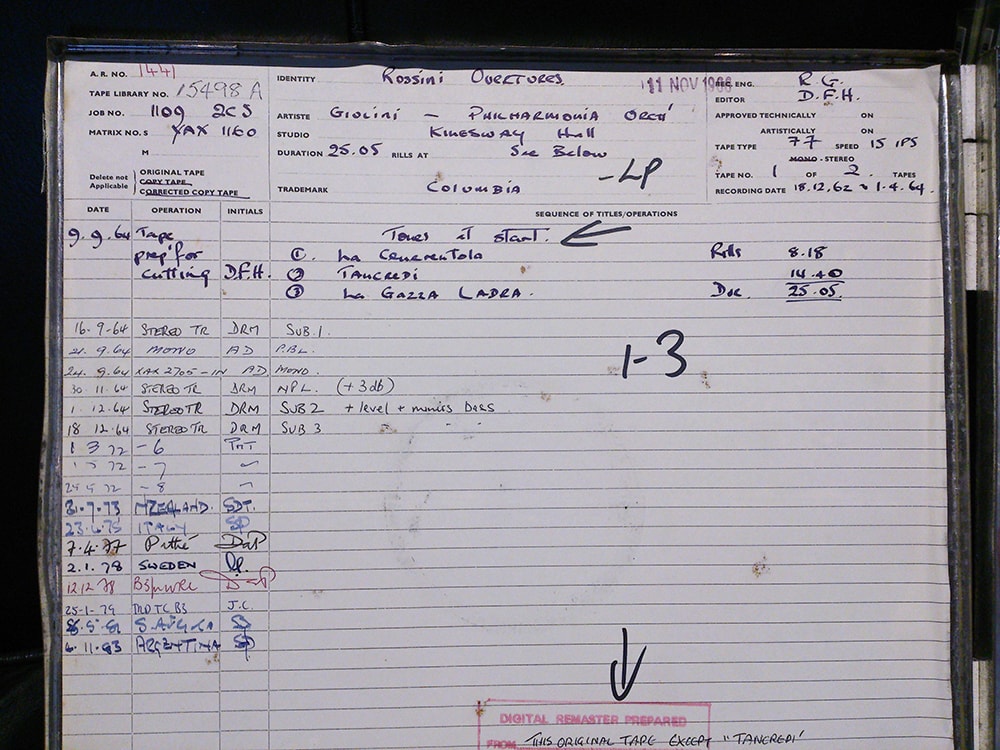 A.R. NO. 1441
TAPE LIBRARY NO. 15498 A
JOB NO. 1109 2CS
MATRIX NO.S YAX 1160
M
Delete not Applicable
ORIGINAL TAPE
COPY TAPE
CORRECTED COPY TAPE
IDENTITY Rossini Overtures
ARTISTE Giulini — Philharmonia Orch
STUDIO Kingsway Hall
DURATION 25.05 RILLS AT See Below
- LP
TRADEMARK Columbia
11 NOV 1966
REC. ENG. R.G.
EDITOR D.F.H.
APPROVED TECHNICALLY ON
ARTISTICALLY ON
TAPE TYPE 77 SPEED 15 IPS
MONO - STEREO
TAPE NO. 1 OF 2. TAPES
RECORDING DATE 18.12.62 1.4.64.
DATE OPERATION INITIALS SEQUENCE OF TITLES/OPERATIONS
9.9.64 Tape prep for cutting D.F.H.
Tones at start.
① La Cenerentola Rills 8.18
② Tancredi 14.40
③ La Gazza Ladra. Dur. 25.05.
1-3
16.9.64 STEREO TR DRM SUB.1.
21.9.64 MONO AD P.B.L.
24.9.64 XAX 2705-1N AD MONO.
30 11.64 STEREO TR DRM NPL. (+3db)
1.12.64 STEREO TR DRM SUB 2 + level +
18 12.64 STEREO TR DRM SUB 3 " "
1 3 72 -6
72 -7
72 -8
31.7.73 NZEALAND. SDT.
23.6.75 ITALY SP
7.4.77 Pathé
2.1.78 SWEDEN
12 12 78
25-1-79 J.C.
S. AFRICA
6.11.83 ARGENTINA SP
DIGITAL REMASTER PREPARED
FROM THIS ORIGINAL TAPE EXCEPT "TANCREDI"